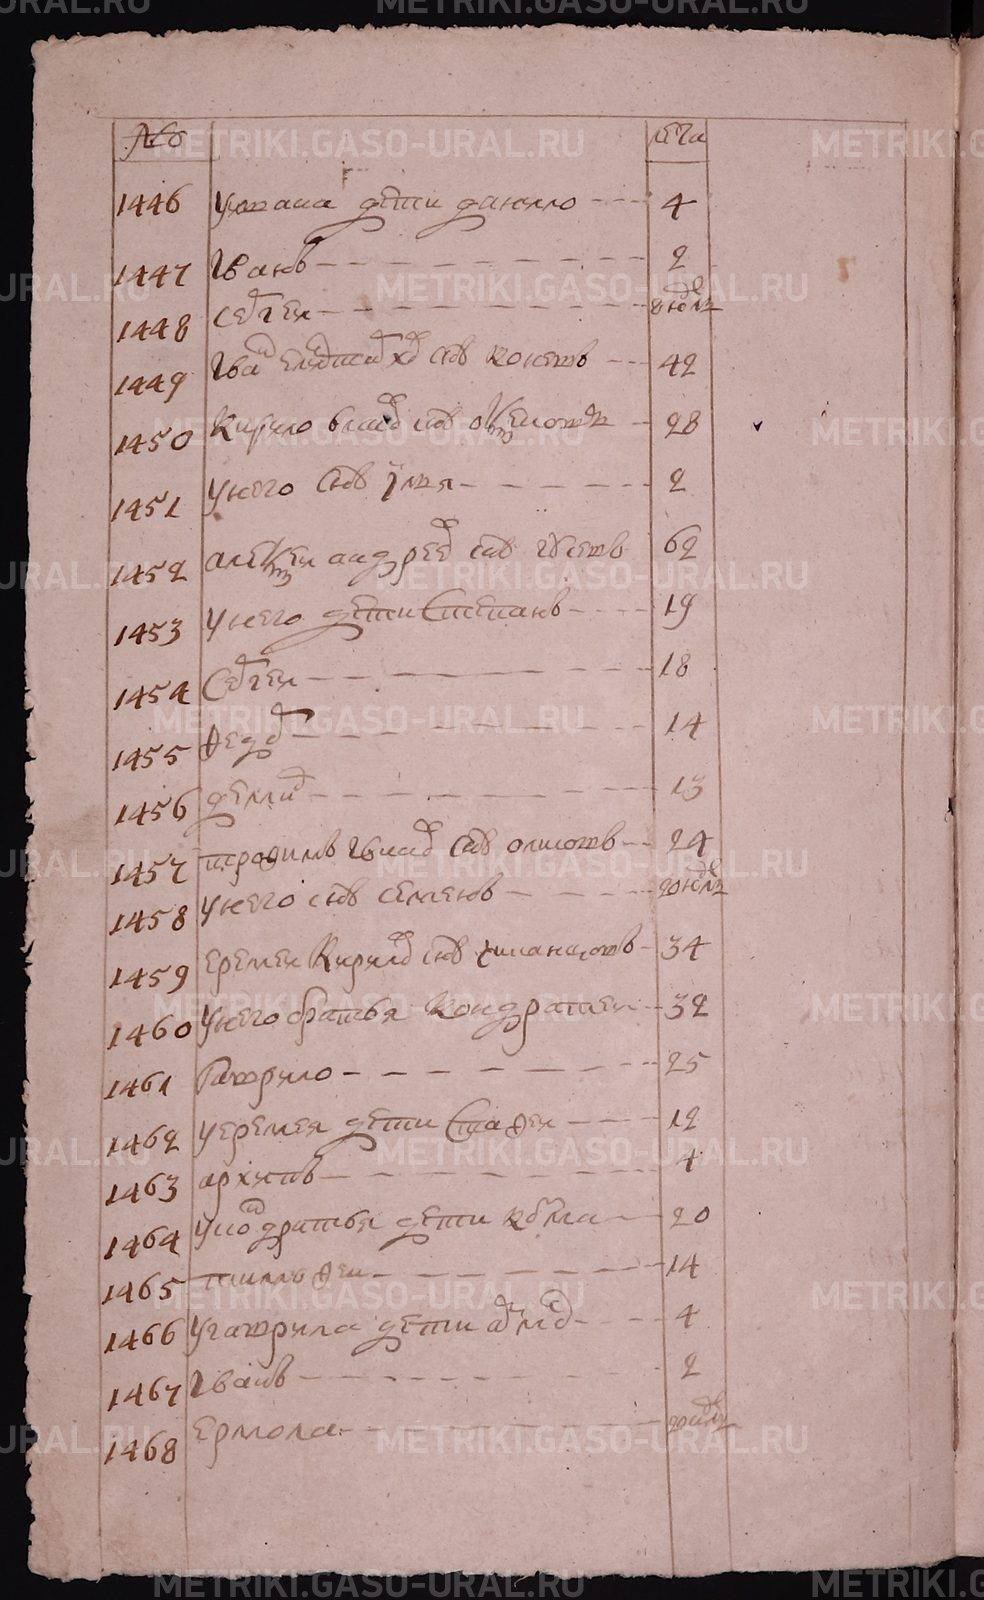 METRIKI.GASO-URAL.RU
№ лѣта
1446 У дети данило 4
1447 Иванъ 2
1448 Сергеи недель
1449 Ива снъ 42
1450 Кирило снъ 28
1451 У него снъ илья 2
1452 алексеи андреев снъ 62
1453 У него дети Степанъ 19
1454 Сергеи 18
1455 Ѳедор 14
1456 демид 13
1457 троѳимъ снъ 24
1458 У него снъ Семенъ 20 недель
1459 еремеи Кирилов снъ 34
1460 У него братья кондратеи 32
1461 Гаврило 25
1462 У еремея дети Стаѳеи 12
1463 архипъ 4
1464 У кондратья дети козма 20
1465 тимоѳеи 14
1466 У гаврила дети 4
1467 Иванъ 2
1468 Ермола 20 недель